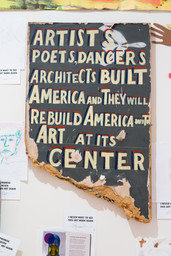 ARTISTS
POETS, DANCERS
ARCHITECTS BUILT
AMERICA AND THEY WILL
REBUILD AMERICA WITH
ART AT ITS
CENTER